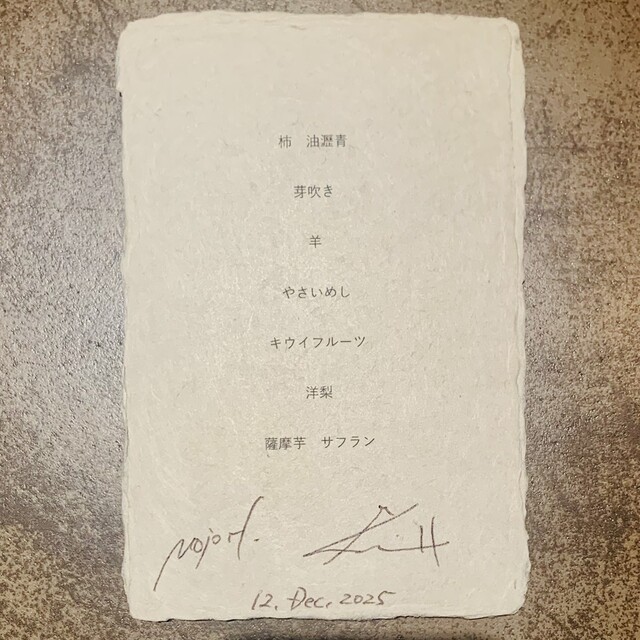 柿　油瀝青
芽吹き
羊
やさいめし
キウイフルーツ
洋梨
薩摩芋　サフラン
12. Dec. 2025